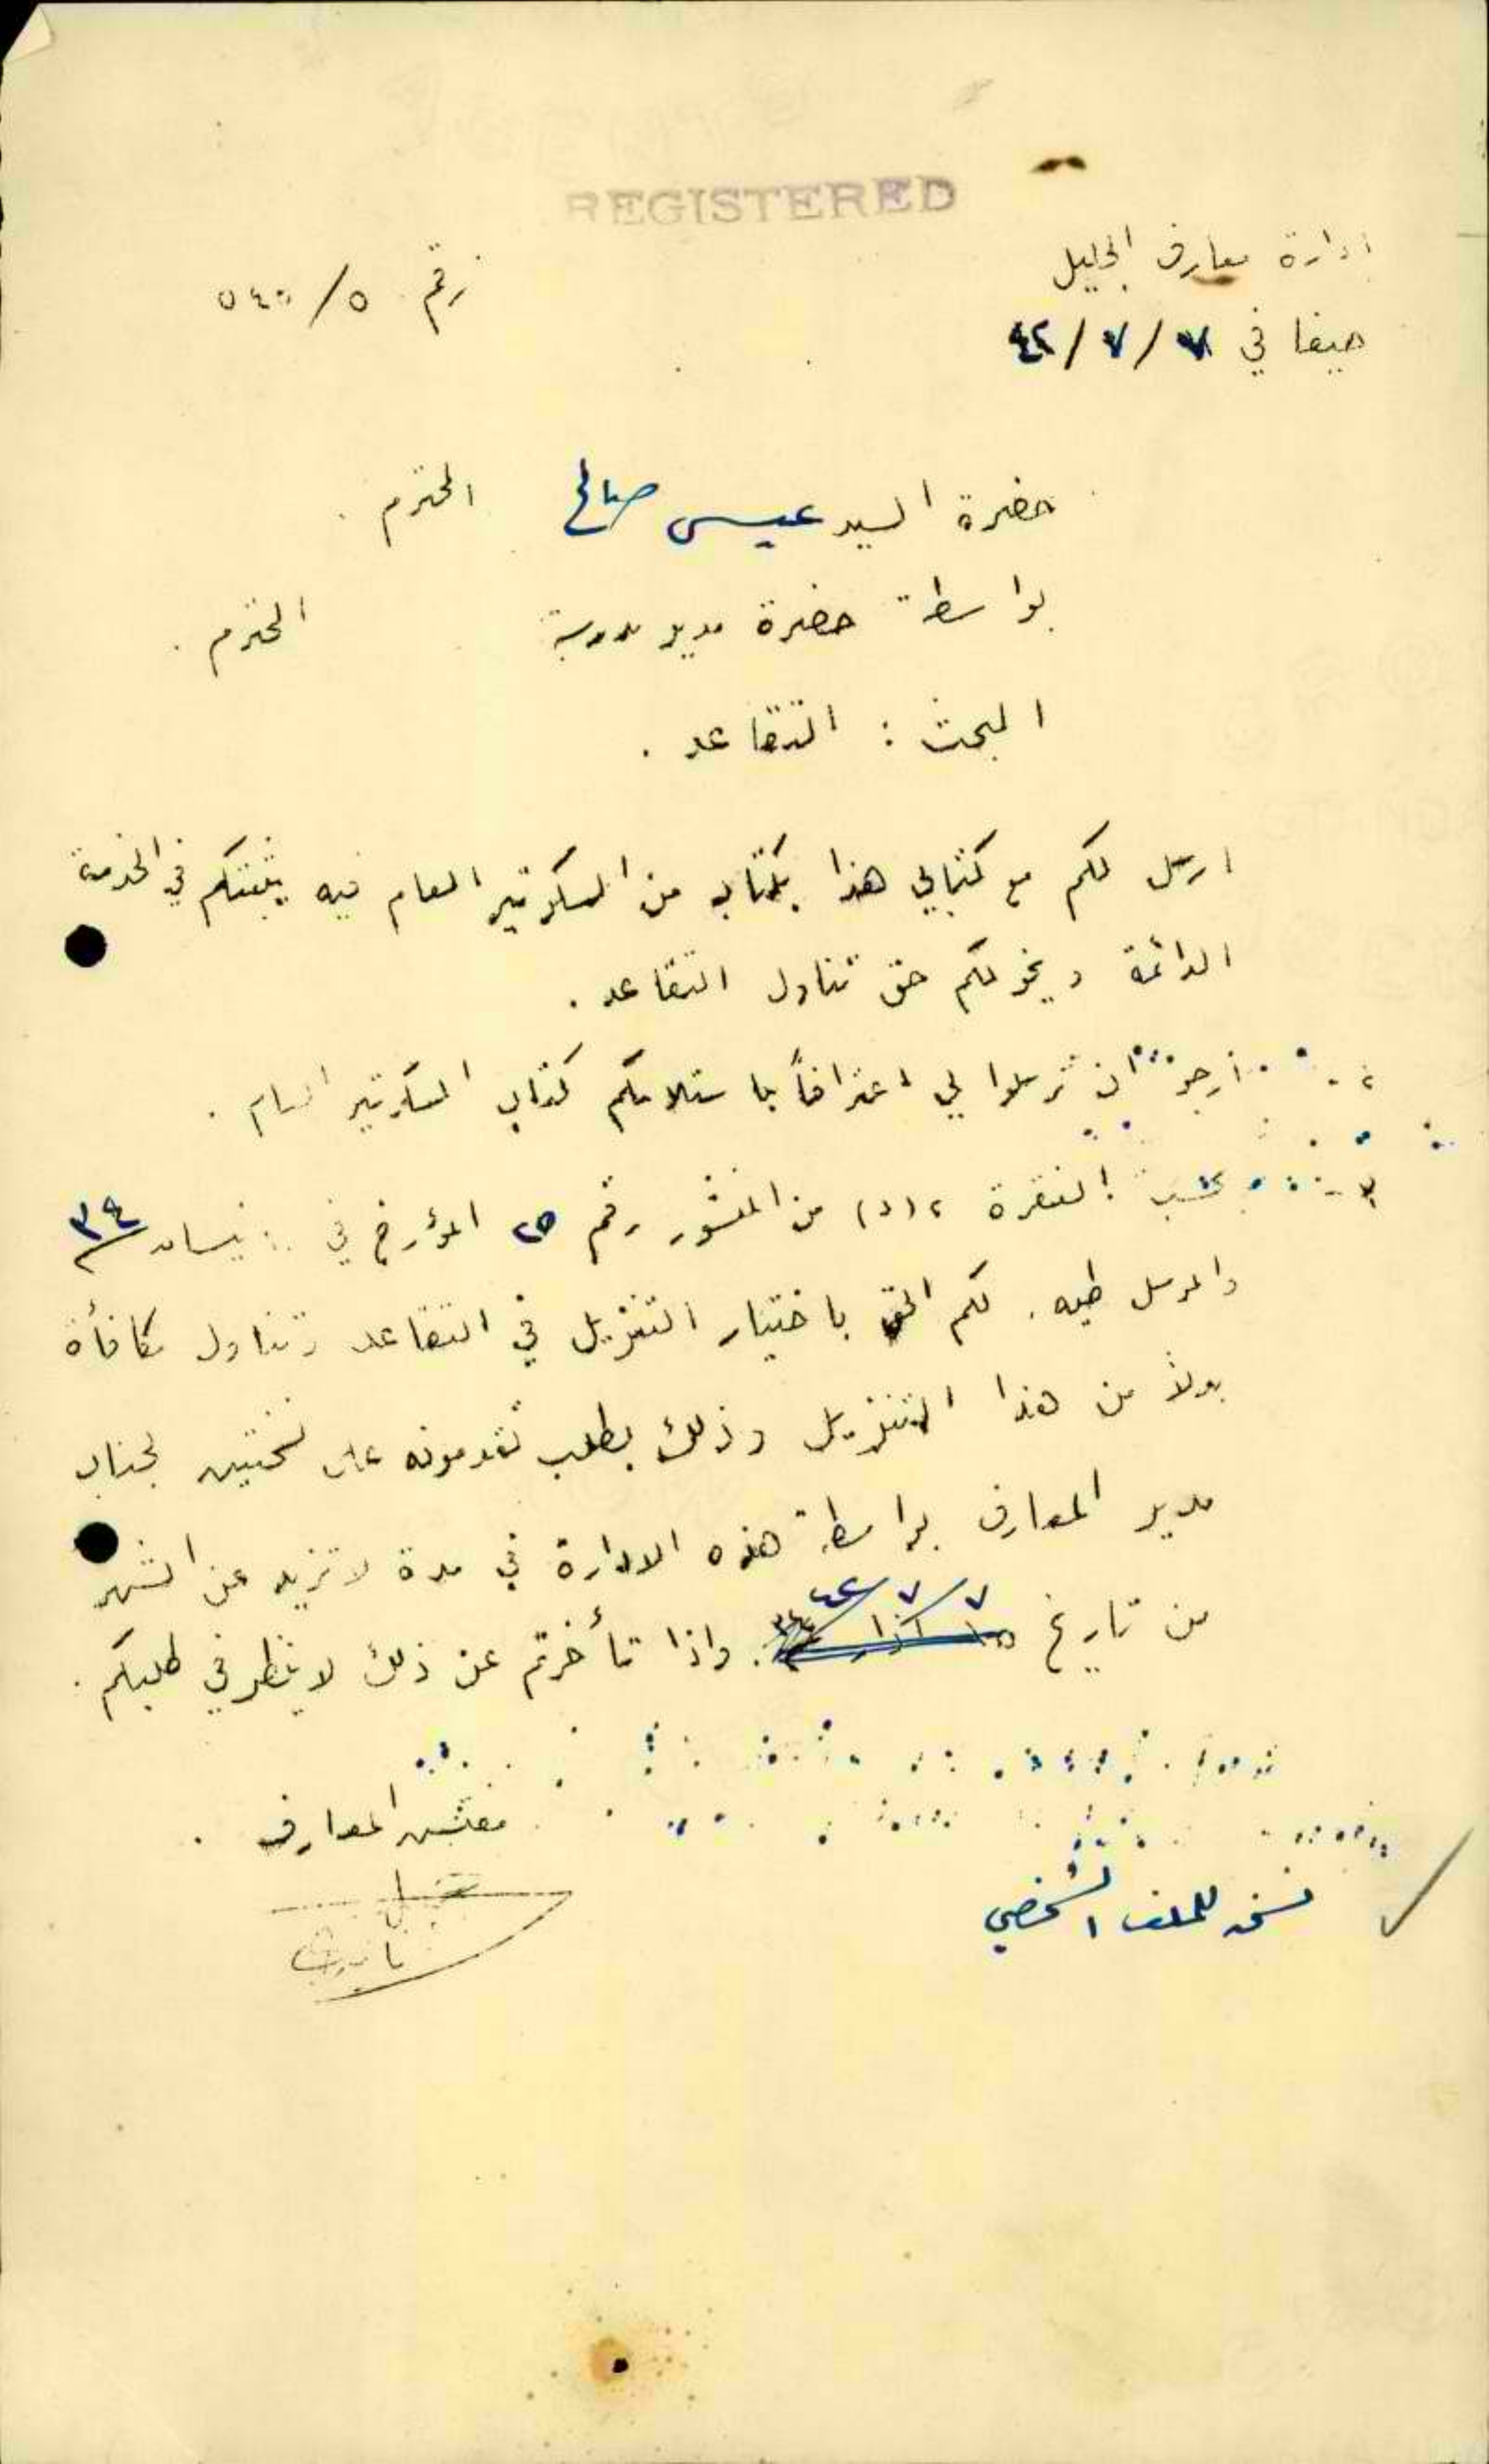 REGISTERED
ادارة معارف الجليل
رقم ٥٤٠/٥
حيفا في ٧/٧/٤٢
حضرة السيد عيسى صالح المحترم .
بواسطة حضرة مدير مدرسة المحترم .
المبحث : التقاعد .
ارسل لكم مع كتابي هذا كتاب من السكرتير العام فيه يثبتكم في الخدمة
الدائمة ويخولكم حق تناول التقاعد .
٢ - ارجو ان ترسلوا لي اعترافاً باستلامكم كتاب السكرتير العام .
٣ - بحسب الفقرة ٢(د) من المنشور رقم ٢٥ المؤرخ في نيسان ٣٤
والمرسل طيه . لكم الحق باختيار التنزيل في التقاعد وتناول مكافأة
بدلاً من هذا التنزيل وذلك بطلب تقدمونه على نسختين لجناب
مدير المعارف بواسطة هذه الادارة في مدة لا تزيد عن الشهر
من تاريخ ٧/٧/٤٢ . واذا تأخرتم عن ذلك لا ينظر في طلبكم .
مفتش المعارف .
نسخة للملف الشخصي